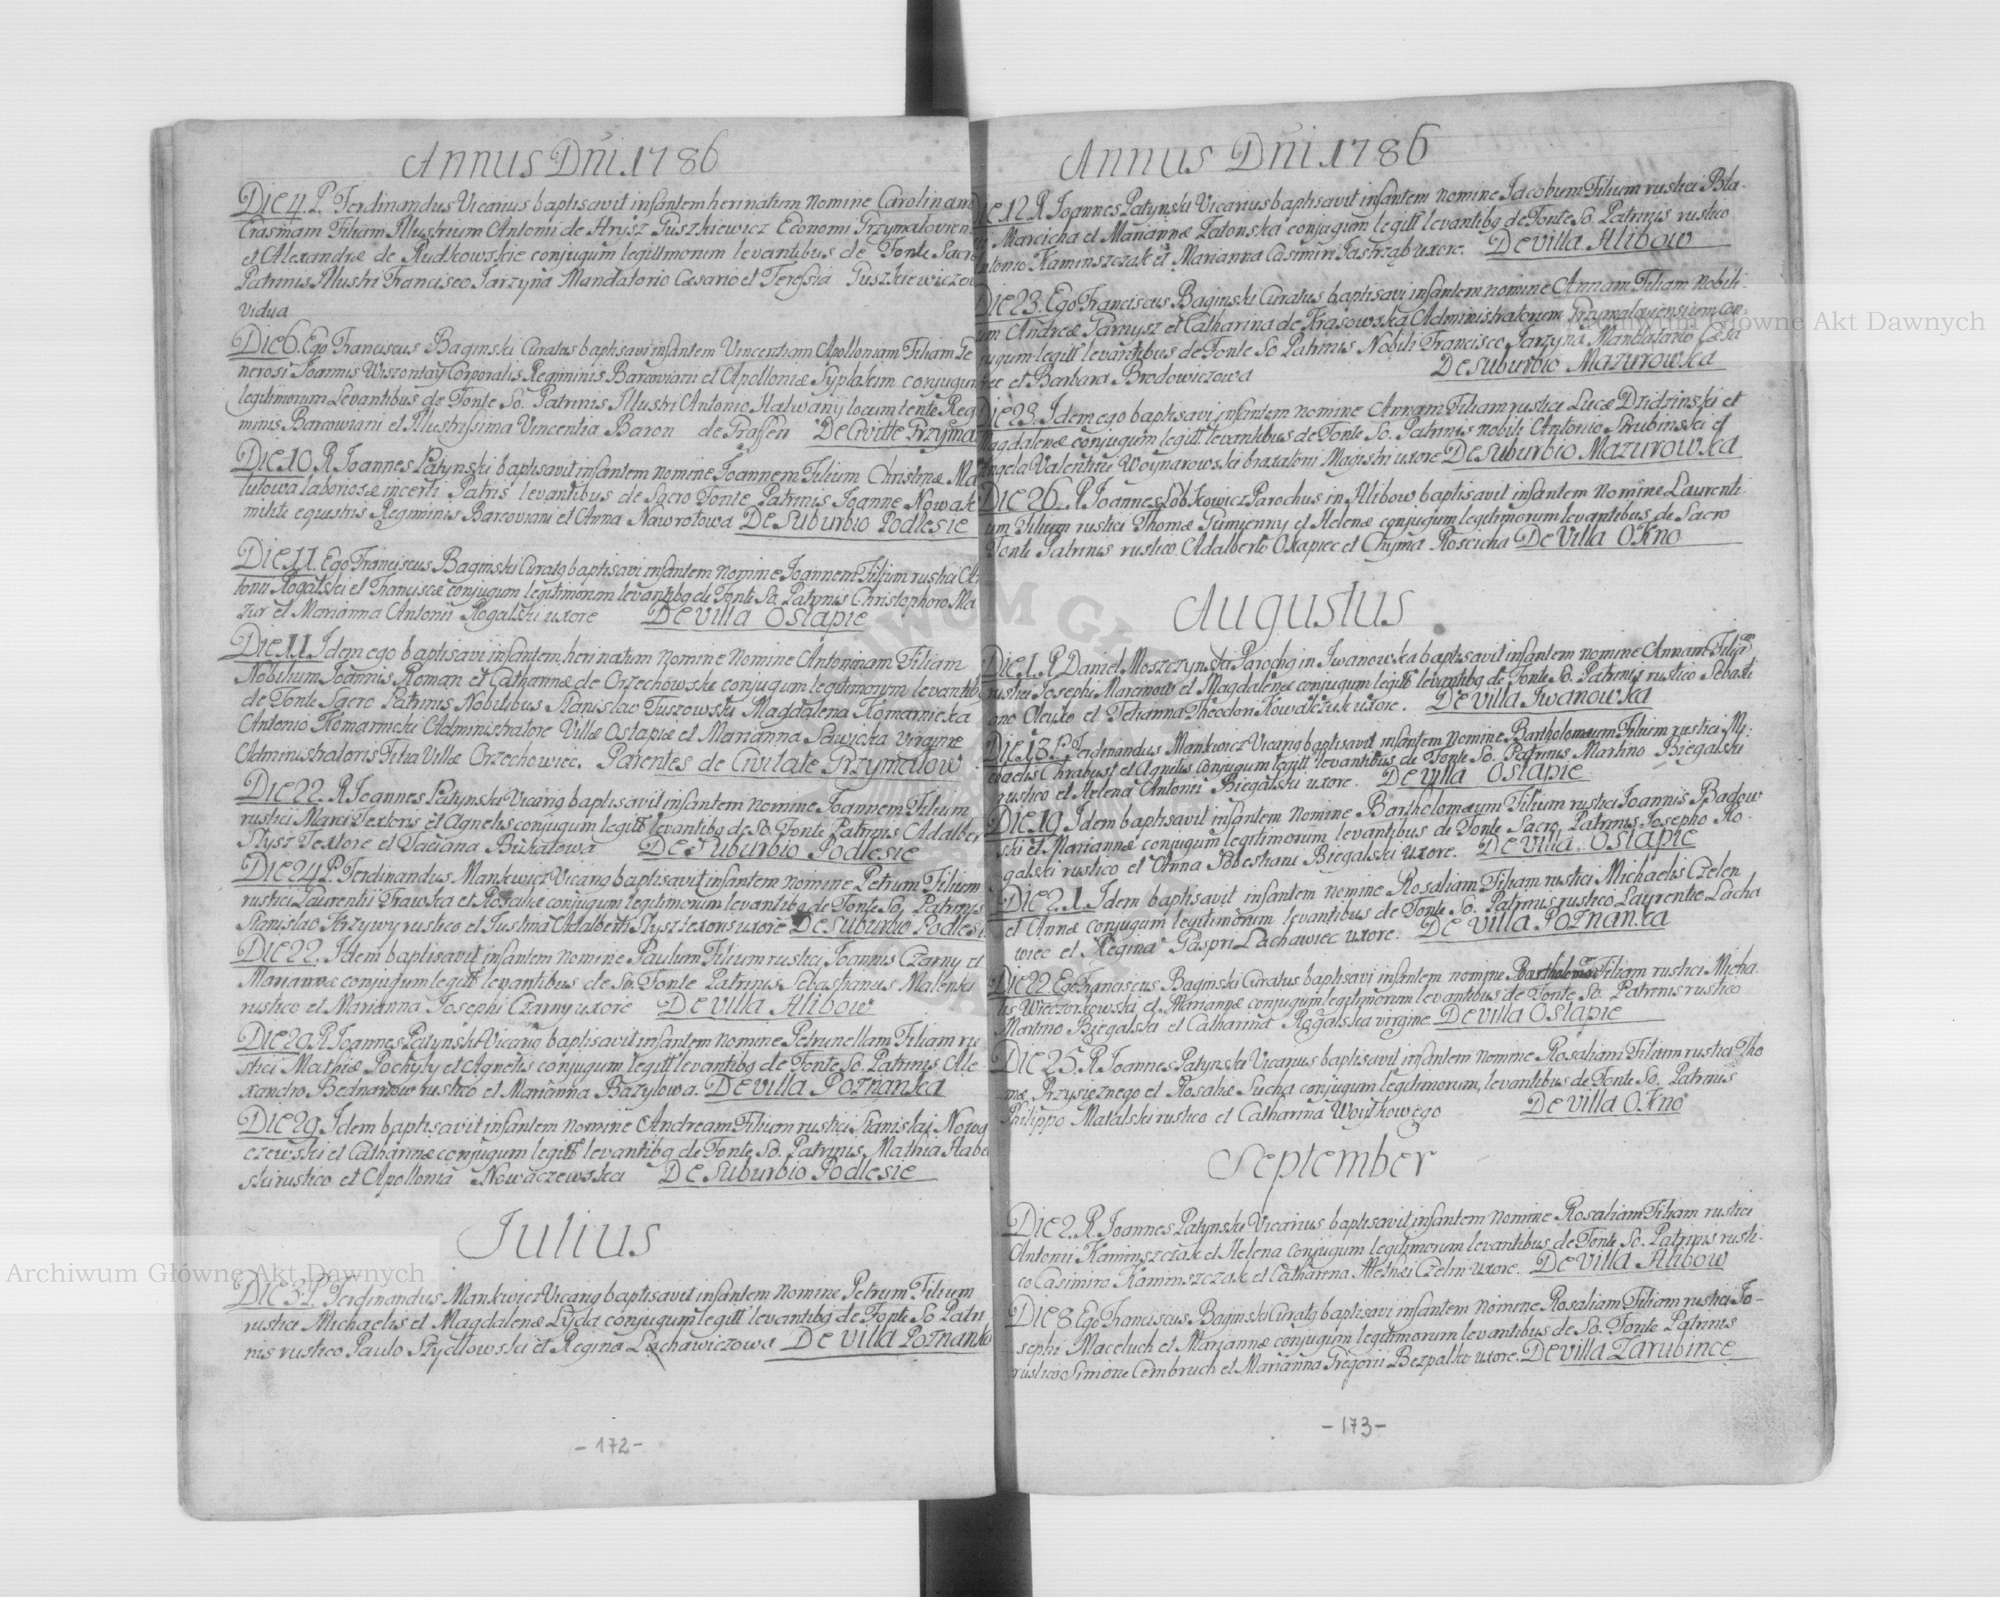 Annus Dñi 1786
Die 4. P. Ferdinandus Vicarius baptisavit infantem heri natum nomine Carolinam
Erasmam Filiam Illustrium Antoni de Hrysz Puszkiewicz Economi Grzymałovien
et Alexandræ de Rudkowskie conjugum legittimorum levantibus de Fonte Sacro
Patrinis Illustri Francisco Jarzyna Mandatario Cæsario et Teressia Puszkiewiczow
vidua
Die 6. Ego Franciscus Baginski Curatus baptisavi infantem Vincentiam Apolloniam Filiam Ge
nerosi Joannis Wiszontay Corporalis Regiminis Barcoviani et Apolloniæ conjugum
legitimorum Levantibus de Fonte So. Patrinis Illustri Antonio Hatwanij locum tente Reg
minis Barcowiani et Illustrissima Vincentia Baron de Graffen De Civitte Grzyma
Die 10. R. Joannes Patynski baptisavit infantem nomine Joannem Filium Christinæ Ma
lutowa laboriosæ incerti Patris levantibus de Sacro Fonte Patrinis Joanne Nowak
milite equestris Regiminis Barcoviani et Anna Nawrotowa De Suburbio Podlesie
Die 11. Ego Franciscus Baginski Curatq baptisavi infantem nomine Joannem Filium rustici An
tonii Rogalski et Franciscæ conjugum legitimorum levantibq de Fonte So. Patrinis Christophoro Ma
zur et Marianna Antonii Rogalski uxore De Villa Ostapie
Die 11. Idem ego baptisavi infantem heri natum nomine nomine Antoninam Filiam
Nobilium Joannis Roman et Catharinæ de Orzechowskie conjugum legitimorum levantib
de Fonte Sacro Patrinis Nobilibus Stanislao Tuszowski Magdalena Komarnicka
Antonio Komarnicki Administratore Villæ Ostapiæ et Marianna Sawicka virgine
Administratoris Filia Villæ Orzechowiec. Parentes de Civitate Grzymałow
Die 22. R. Joannes Patynski Vicariq baptisavit infantem nomine Joannem Filium
rustici Marci Textoris et Agnetis conjugum legitt levantibq de So. Fonte Patrinis Adalber
Hysz Textore et Taciana Bukatowa De Suburbio Podlesie
Die 24 P. Ferdinandus Mankwicz Vicariq baptisavit infantem nomine Petrum Filium
rustici Laurentii Trawka et Rosaliæ conjugum legitimorum levantibq de Fonte So. Patrinis
Stanislao Krzywy rustico et Justina Adalberti Hysz texoris uxore De Suburbio Podlesi
Die 22. Idem baptisavit infantem nomine Paulum Filium rustici Joannis Czarny et
Mariannæ conjugum legitt levantibus de So. Fonte Patrinis Sebastianus Malenki
rustico et Marianna Josephi Czarny uxore De Villa Hlibow
Die 29. R. Joannes Patynski Vicariq baptisavit infantem nomine Petrunellam Filiam ru
stici Mathiæ Pochyly et Agnetis conjugum legitt levantibq de Fonte So. Patrinis Ale
xandro Bednarzow rustico et Marianna Bazylowa. De Villa Poznanka
Die 29. Idem baptisavit infantem nomine Andream Filium rustici Stanislai Nowa
czewski et Catharinæ conjugum legitt levantibq de Fonte So. Patrinis Mathia Habe
ski rustico et Apollonia Nowaczewska De Suburbio Podlesie
Julius
Die 3. P. Ferdinandus Mankwicz Vicariq baptisavit infantem nomine Petrum Filium
rustici Michaelis et Magdalenæ Lyda conjugum legitt levantibq de Fonte So Patri
nis rustico Paulo Szydłowski et Regina Lachawiczowa De Villa Poznank
- 172 -
Annus Dñi 1786
Die 12. R. Joannes Patynski Vicarius baptisavit infantem nomine Jacobum Filium rustici Bla-
sii Marcicha et Mariannæ Patonska conjugum legitt levantibq de Fonte So. Patrinis rustico
Antonio Kaminszczak et Marianna Casimiri Jastrząb uxore. De Villa Hlibow
Die 23. Ego Franciscus Baginski Curatus baptisavi infantem nomine Annam Filiam nobili-
um Andreæ Parnysz et Catharina de Krasowska Administratorum Grzymaloviensium con-
jugum legitt levantibus de Fonte So Patrinis Nobili Francisco Jarzyna Mandatario Cæsa
reo et Barbara Brodowiczowa De Suburbio Mazurowka
Die 23. Idem ego baptisavi infantem nomine Annam Filiam rustici Lucæ Dzidzinski et
Magdalenæ conjugum legitt levantibus de Fonte So. Patrinis nobili Antonio Strubinski et
Angela Valentini Woynarowski braxatoni Magistri uxore De Suburbio Mazurowka
Die 26. R. Joannes Łobkowicz Parochus in Hlibow baptisavit infantem nomine Laurenti
um Filium rustici Thomæ Gumienny et Helenæ conjugum legitimorum levantibus de Sacro
Fonte Patrinis rustico Adalberto Oxapiec et Chyma Roscicha De Villa Okno
Augustus
Die 1. P. Daniel Moszczynski Parochq in Iwanowka baptisavit infantem nomine Annam Filiam
rustici Josephi Marcinow et Magdalenæ conjugum legitt levantibq de Fonte So. Patrinis rustico Sebasti
ano Oleyko et Tetianna Theodori Kowalczuk uxore. De Villa Iwanowka
Die 18. P. Ferdinandus Mankwicz Vicariq baptisavit infantem nomine Bartholomæum Filium rustici Mi-
chaelis Chrabust et Agnetis conjugum legitt levantibus de Fonte So. Patrinis Martino Biegalski
rustico et Helena Antonii Biegalski uxore. De Villa Ostapie
Die 19. Idem baptisavit infantem nomine Bartholomæum Filium rustici Joannis Badow
ski et Mariannæ conjugum legitimorum levantibus de Fonte Sacro Patrinis Josepho Ro-
galski rustico et Anna Sebestiani Biegalski uxore. De Villa Ostapie
Die 21. Idem baptisavit infantem nomine Rosaliam Filiam rustici Michaelis Czelen
et Annæ conjugum legitimorum levantibus de Fonte So. Patrinis rustico Laurentio Lacha
wiec et Regina Gaspri Lachawiec uxore. De Villa Poznanka
Die 22. Ego Franciscus Baginski Curatus baptisavi infantem nomine Filiam rustici Micha
lis Wieczorkowski et Mariannæ conjugum legitimorum levantibus de Fonte So. Patrinis rustico
Martino Biegalski et Catharina Rogalska virgine De Villa Ostapie
Die 25. R. Joannes Patynski Vicarius baptisavit infantem nomine Rosaliam Filiam rustici Tho
mæ Przysieznego et Rosaliæ Sucha conjugum legitimorum, levantibus de Fonte So. Patrinis
Philippo Matalski rustico et Catharina Woytkowego De Villa Okno
September
Die 2. R. Joannes Patynski Vicarius baptisavit infantem nomine Rosaliam Filiam rustici
Antonii Kaminszczak et Helena conjugum legitimorum levantibus de Fonte So. Patrinis rusti-
co Casimiro Kaminszczak et Catharina Mathæi Czelni uxore. De Villa Hlibow
Die 8. Ego Franciscus Baginski Curatq baptisavi infantem nomine Rosaliam Filiam rustici Jo-
sephi Maceluch et Mariannæ conjugum legitimorum levantibus de So. Fonte Patrinis
rustico Simone Cembruch et Marianna Gregorii Bezpalko uxore. De Villa Zarubince
- 173 -
Archiwum Główne Akt Dawnych
Archiwum Główne Akt Dawnych